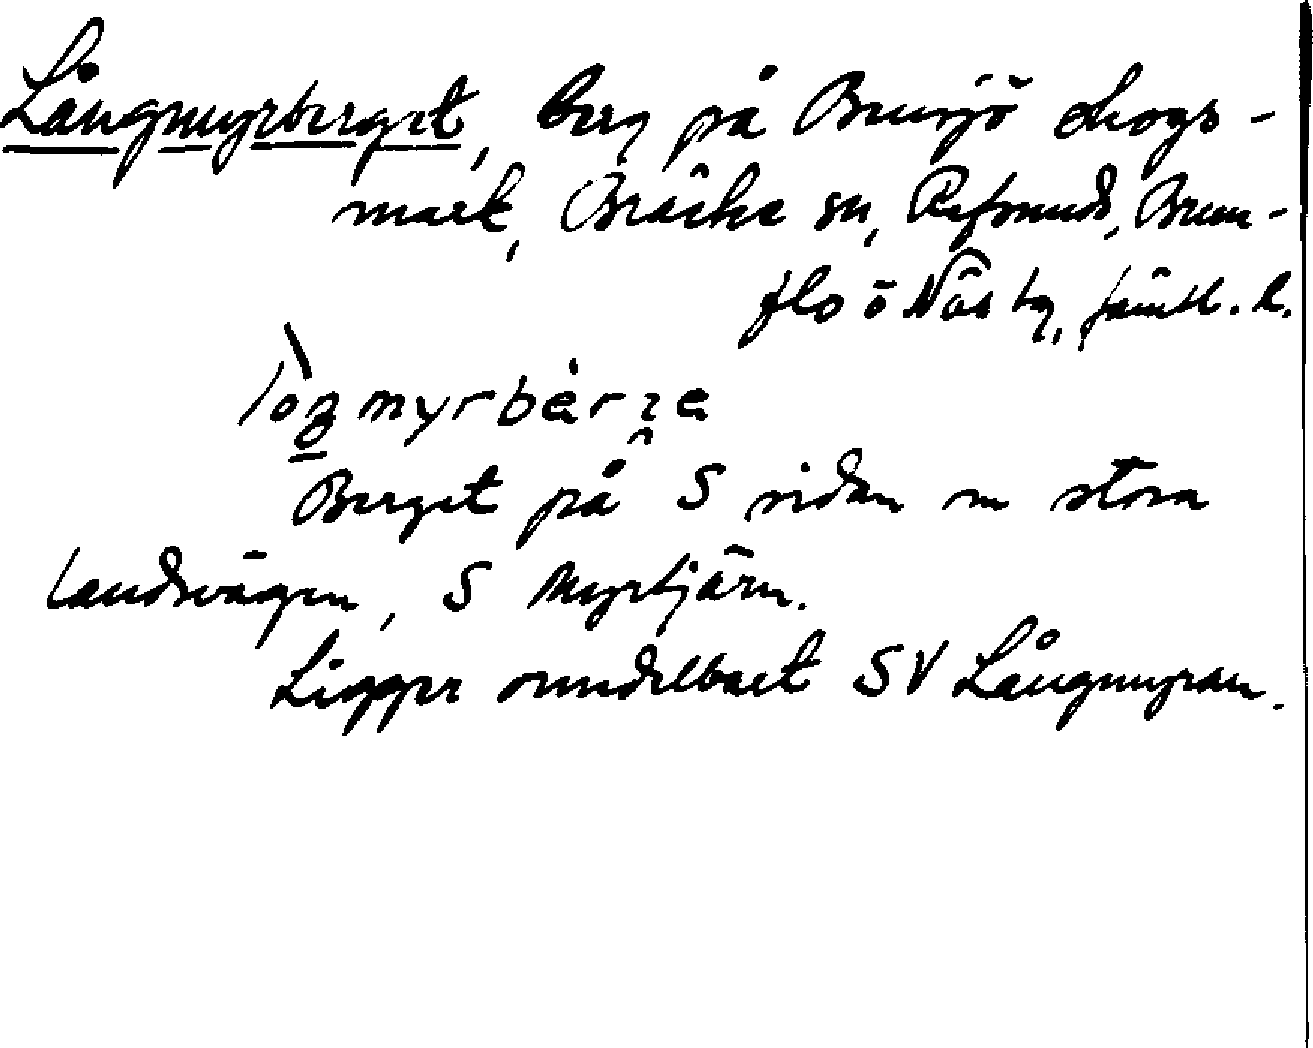 Långmyrberget, berg på Bensjö skogs-
mark, Bräcke sn, Refsunds, Brun-
flo o Näs tg, Jämtl. l.
Berget på S sidan om stora
landsvägen, S Myrtjärn.
Ligger omedelbart SV Långmyran.